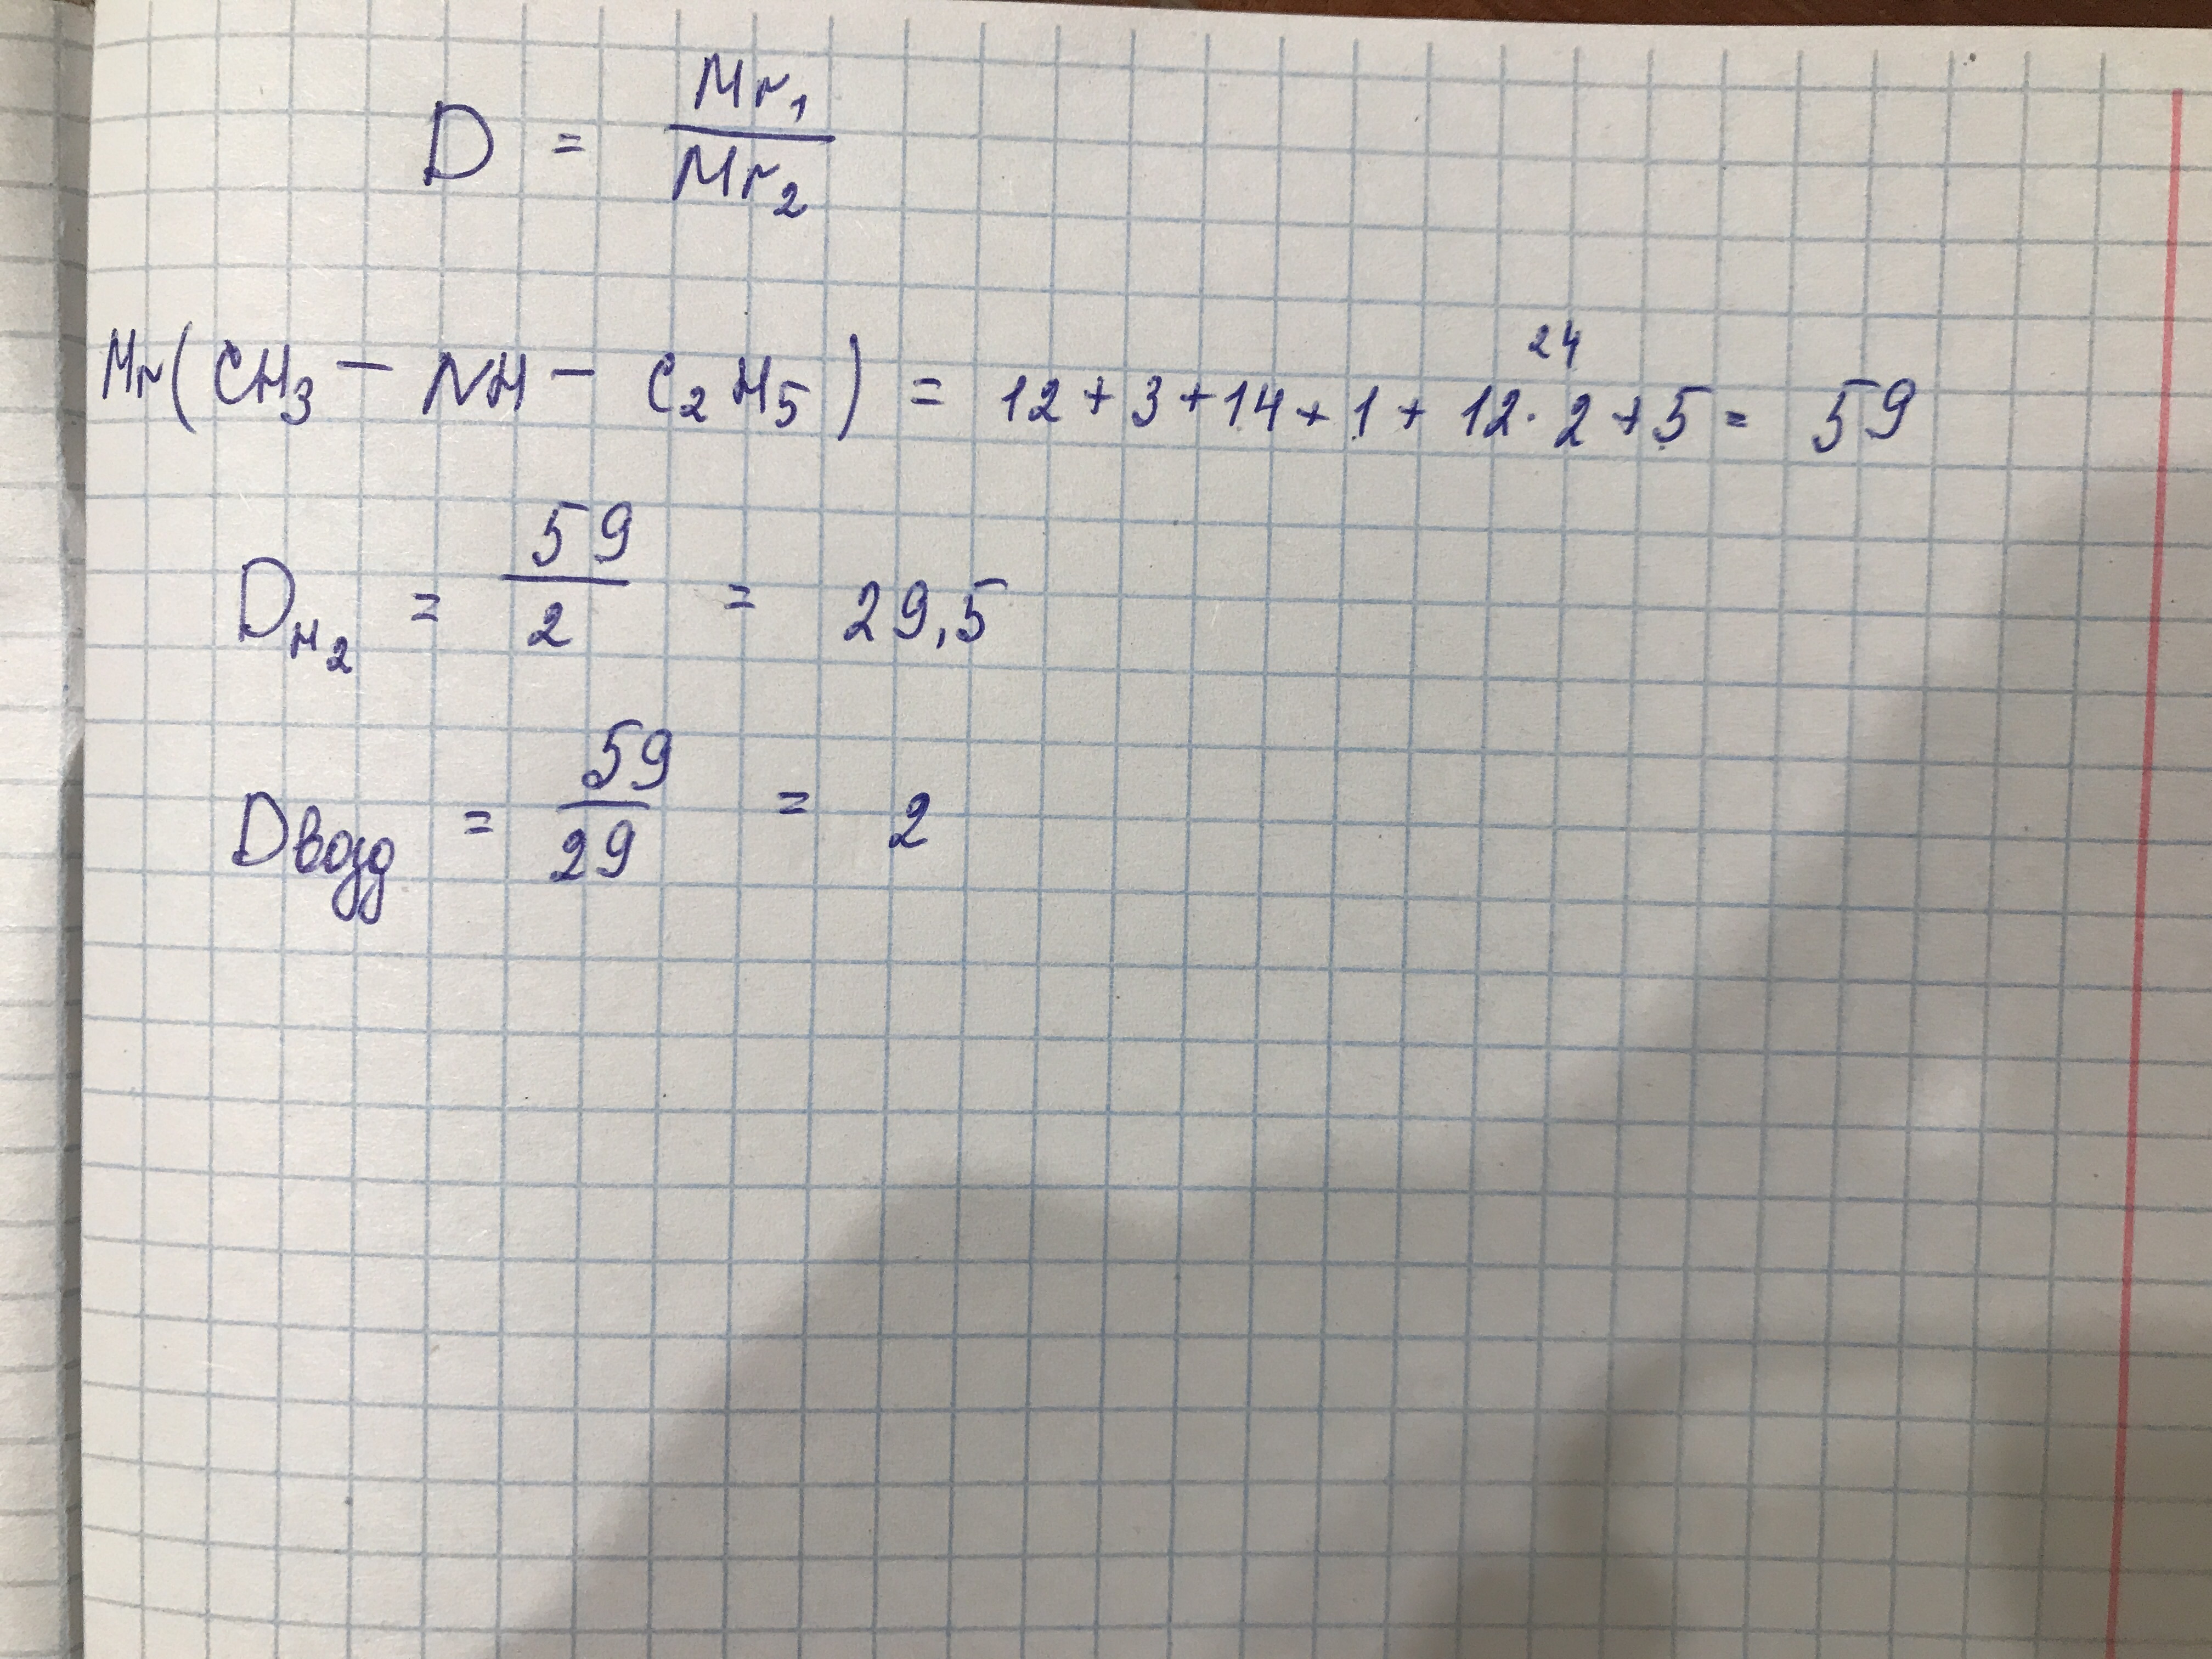 D = Mr₁ / Mr₂
Mr(CH₃ – NH – C₂H₅) = 12 + 3 + 14 + 1 + 12 · 2 + 5 = 59
24
D_H₂ = 59 / 2 = 29,5
Dвозд = 59 / 29 = 2